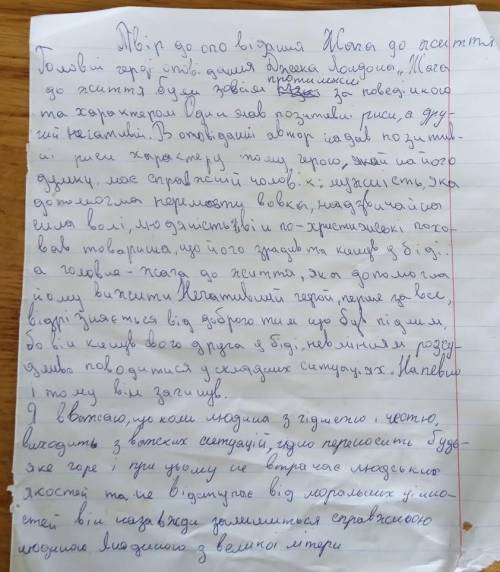 Твір до оповідання Жага до життя
Головні герої оповідання Джека Лондона „Жага
протилежні
до життя були зовсім за поведінкою
та характером Один мав позитивні риси, а дру-
гий негативні. В оповіданні автор надав позитив-
ні риси характеру тому герою, який на його
думку має справжній чоловік: мужність, яка
допомогла перемогти вовка, надзвичайна
сила волі, людяність він по-християнські похо-
вав товариша, що його зрадив та кинув у біді...
а головне - жага до життя, яка допомогла
йому вижити Негативний герой, перше за все,
відрізняється від доброго тим що був підлим,
бо він кинув свого друга у біді, невмінням розсу-
дливо поводитися у складних ситуаціях. Напевно
і тому він загинув.
Я вважаю, що коли людина з гідністю і честю,
виходить з важких ситуацій, гідно переносить будь-
яке горе і при цьому не втрачає людських
якостей та не відступає від моральних цінно-
стей він назавжди залишиться справжньою
людиною Людиною з великої літери